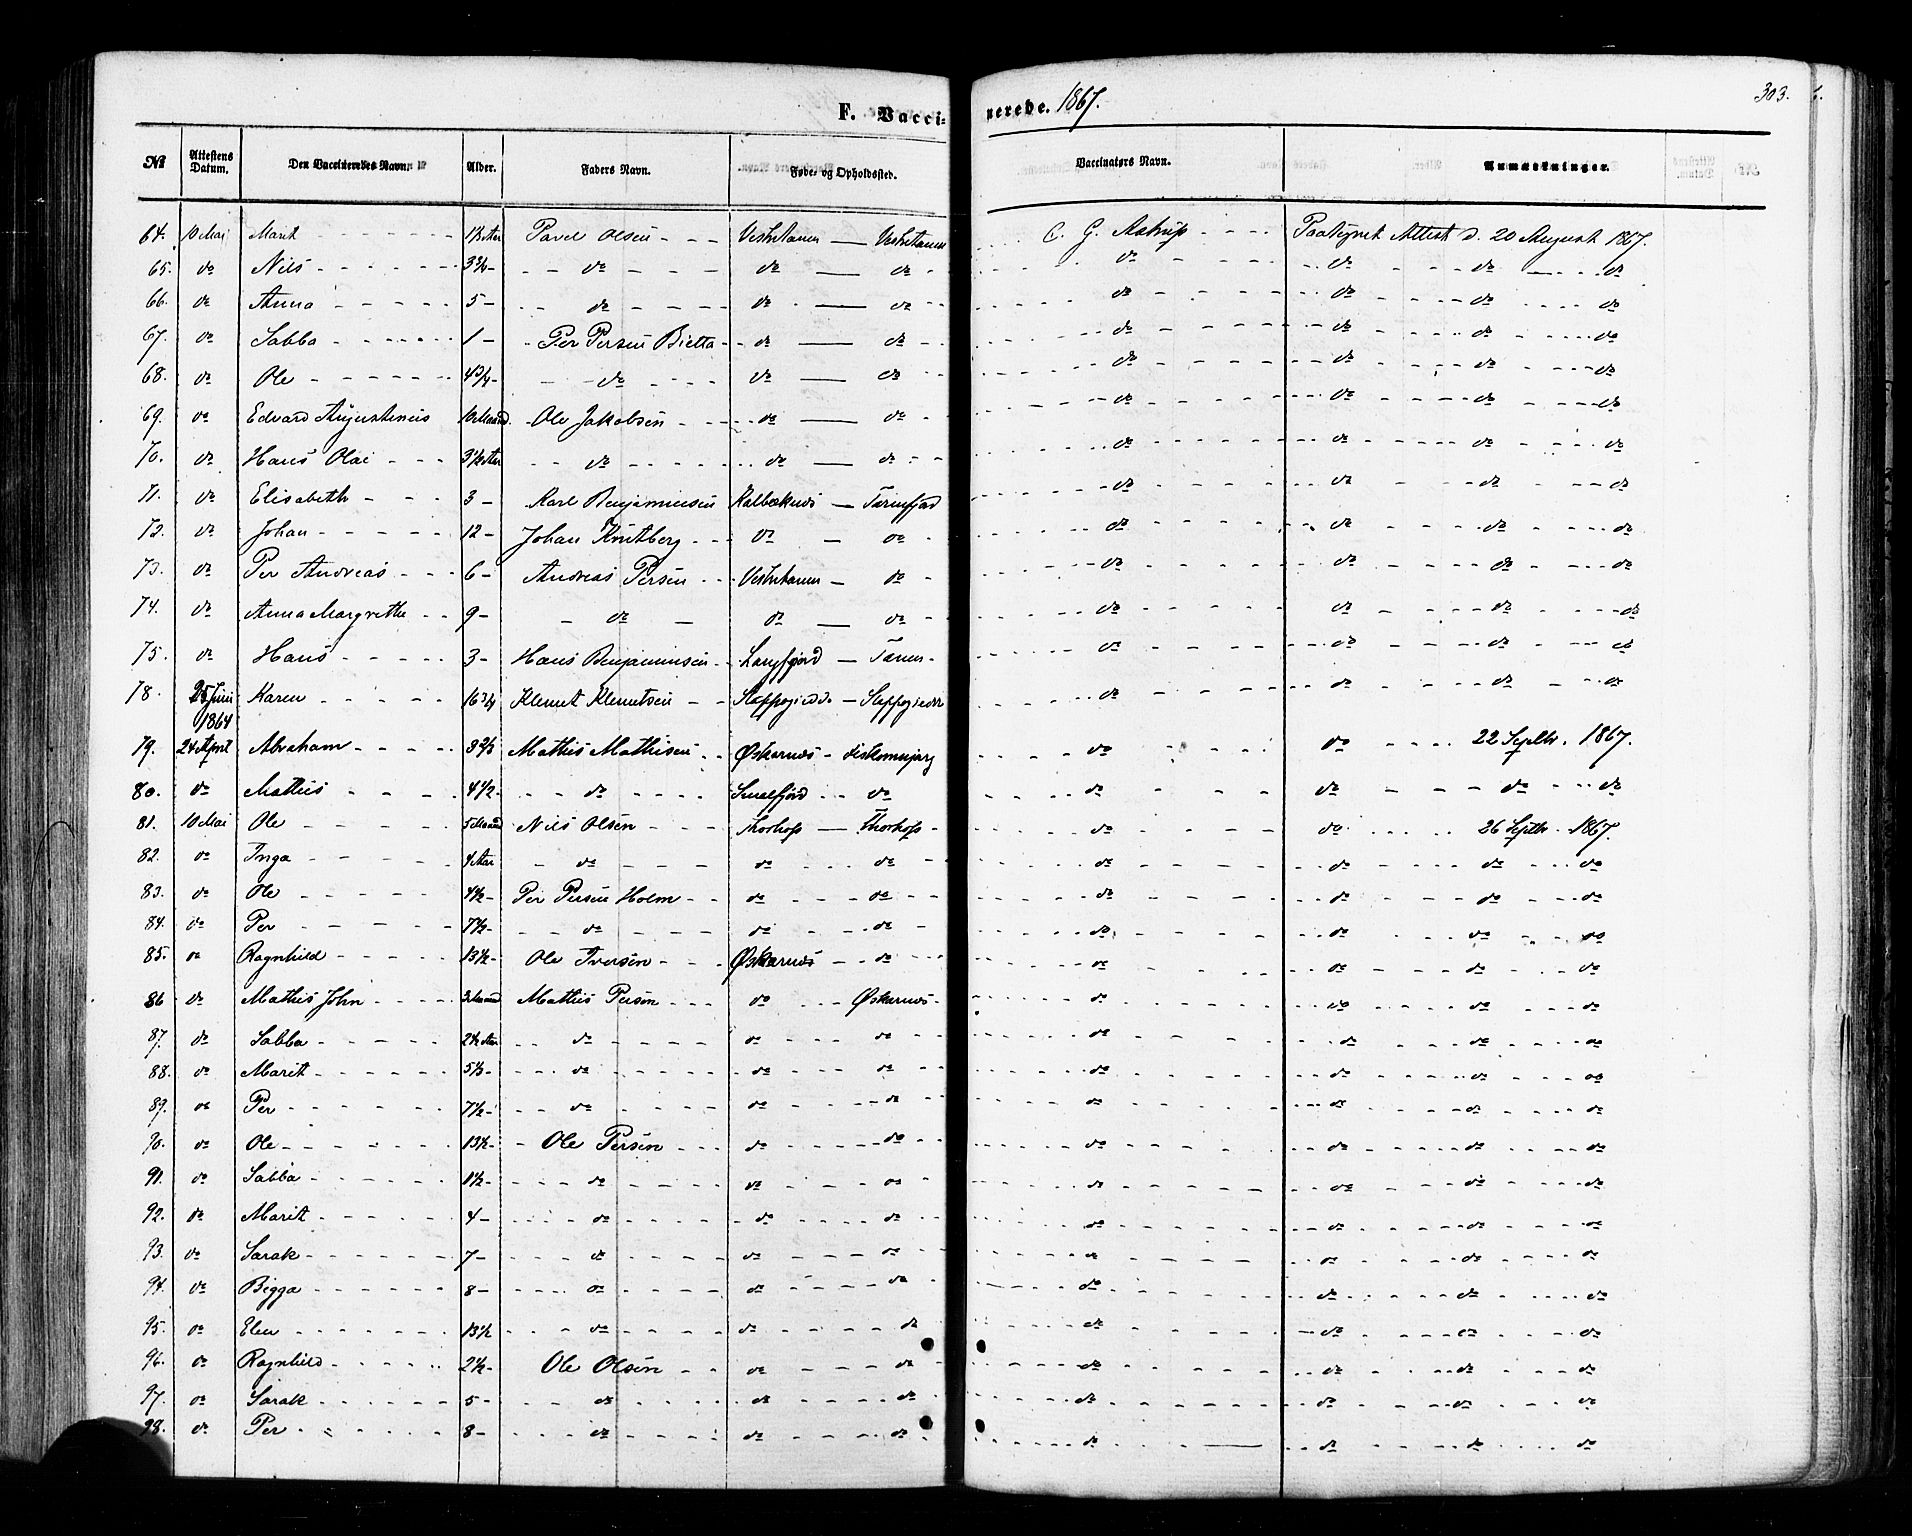 303.
F. Vaccinerede. 1867.
№ | Attestens Datum. | Den Vaccineredes Navn. | Alder. | Faders Navn. | Føde- og Opholdssted. | Vaccinatørs Navn. | Anmærkninger.
64. 10 Mai Marit Pavel Olsen Vestertanen — Vestertanen C. G. Astrup Paategnet Attest d. 20 August 1867.
65. do Nils do do — do do do do do
66. do Anna 5 - do do — do do do do do
67. do Sabba 1 - Per Persen Bietta do — do do do do do
68. do Ole 4 3/4 - do do — do do do do do
69. do Edvard Augustinius 10 Maaned. Ole Jakobsen do — do do do do do
70. do Hans Olai 3 1/2 Aar do do — do do do do do
71. do Elisabeth 3 - Karl Benjaminsen Kalbaknæs — Tanenfjord do do do do
72. do Johan 12 - Johan Knutberg do — do do do do do
73. do Per Andreas 6 - Andreas Persen Vestertanen — do do do do do
74. do Anna Margrethe 9 - do do — do do do do do
75. do Hans 3 - Hans Benjaminsen Langfjord — Tanen do do do do
78. 25 Juni 1864 Karen 16 3/4 Klemet Klemetsen Stappogiedde — Stappogiedde do do do do
79. 24 April Abraham Mathis Mathisen Øskarnæs - do do 22 Septbr. 1867.
80. do Mathis 4 1/2 - do Smalfjord do do do do do
81. 10 Mai Ole 5 Maaned Nils Olsen Thorhop — Thorhop do do 26 Septbr. 1867.
82. do Inga 4 Aar do do do do do do do
83. do Ole 4 1/2 - Per Persen Holm do do do do do do
84. do Per 7 1/2 - do do do do do do do
85. do Ragnhild 13 1/2 - Ole Iversen Øskarnæs - do do do do do
86 do Mathis John 3 Maaned Mathis Persen do Øskarnæs do do do do
87. do Sabba 2 1/2 Aar do do do do do do do
88. do Marit 5 1/3 - do do do do do do do
89. do Per 7 1/2 - do do do do do do do
90. do Ole 13 1/2 - Ole Persen do do do do do do
91. do Sabba 1 1/2 - do do do do do do do
92. do Marit 4 - do do do do do do do
93. do Sarak 7 - do do do do do do do
94. do Bigga 8 - do do do do do do do
95. do Elen 13 1/2 do do do do do do do
96. do Ragnhild 2 1/2 - Ole Olsen do do do do do do
97. do Sarak 5 - do do do do do do do
98. do Per 8 - do do do do do do do